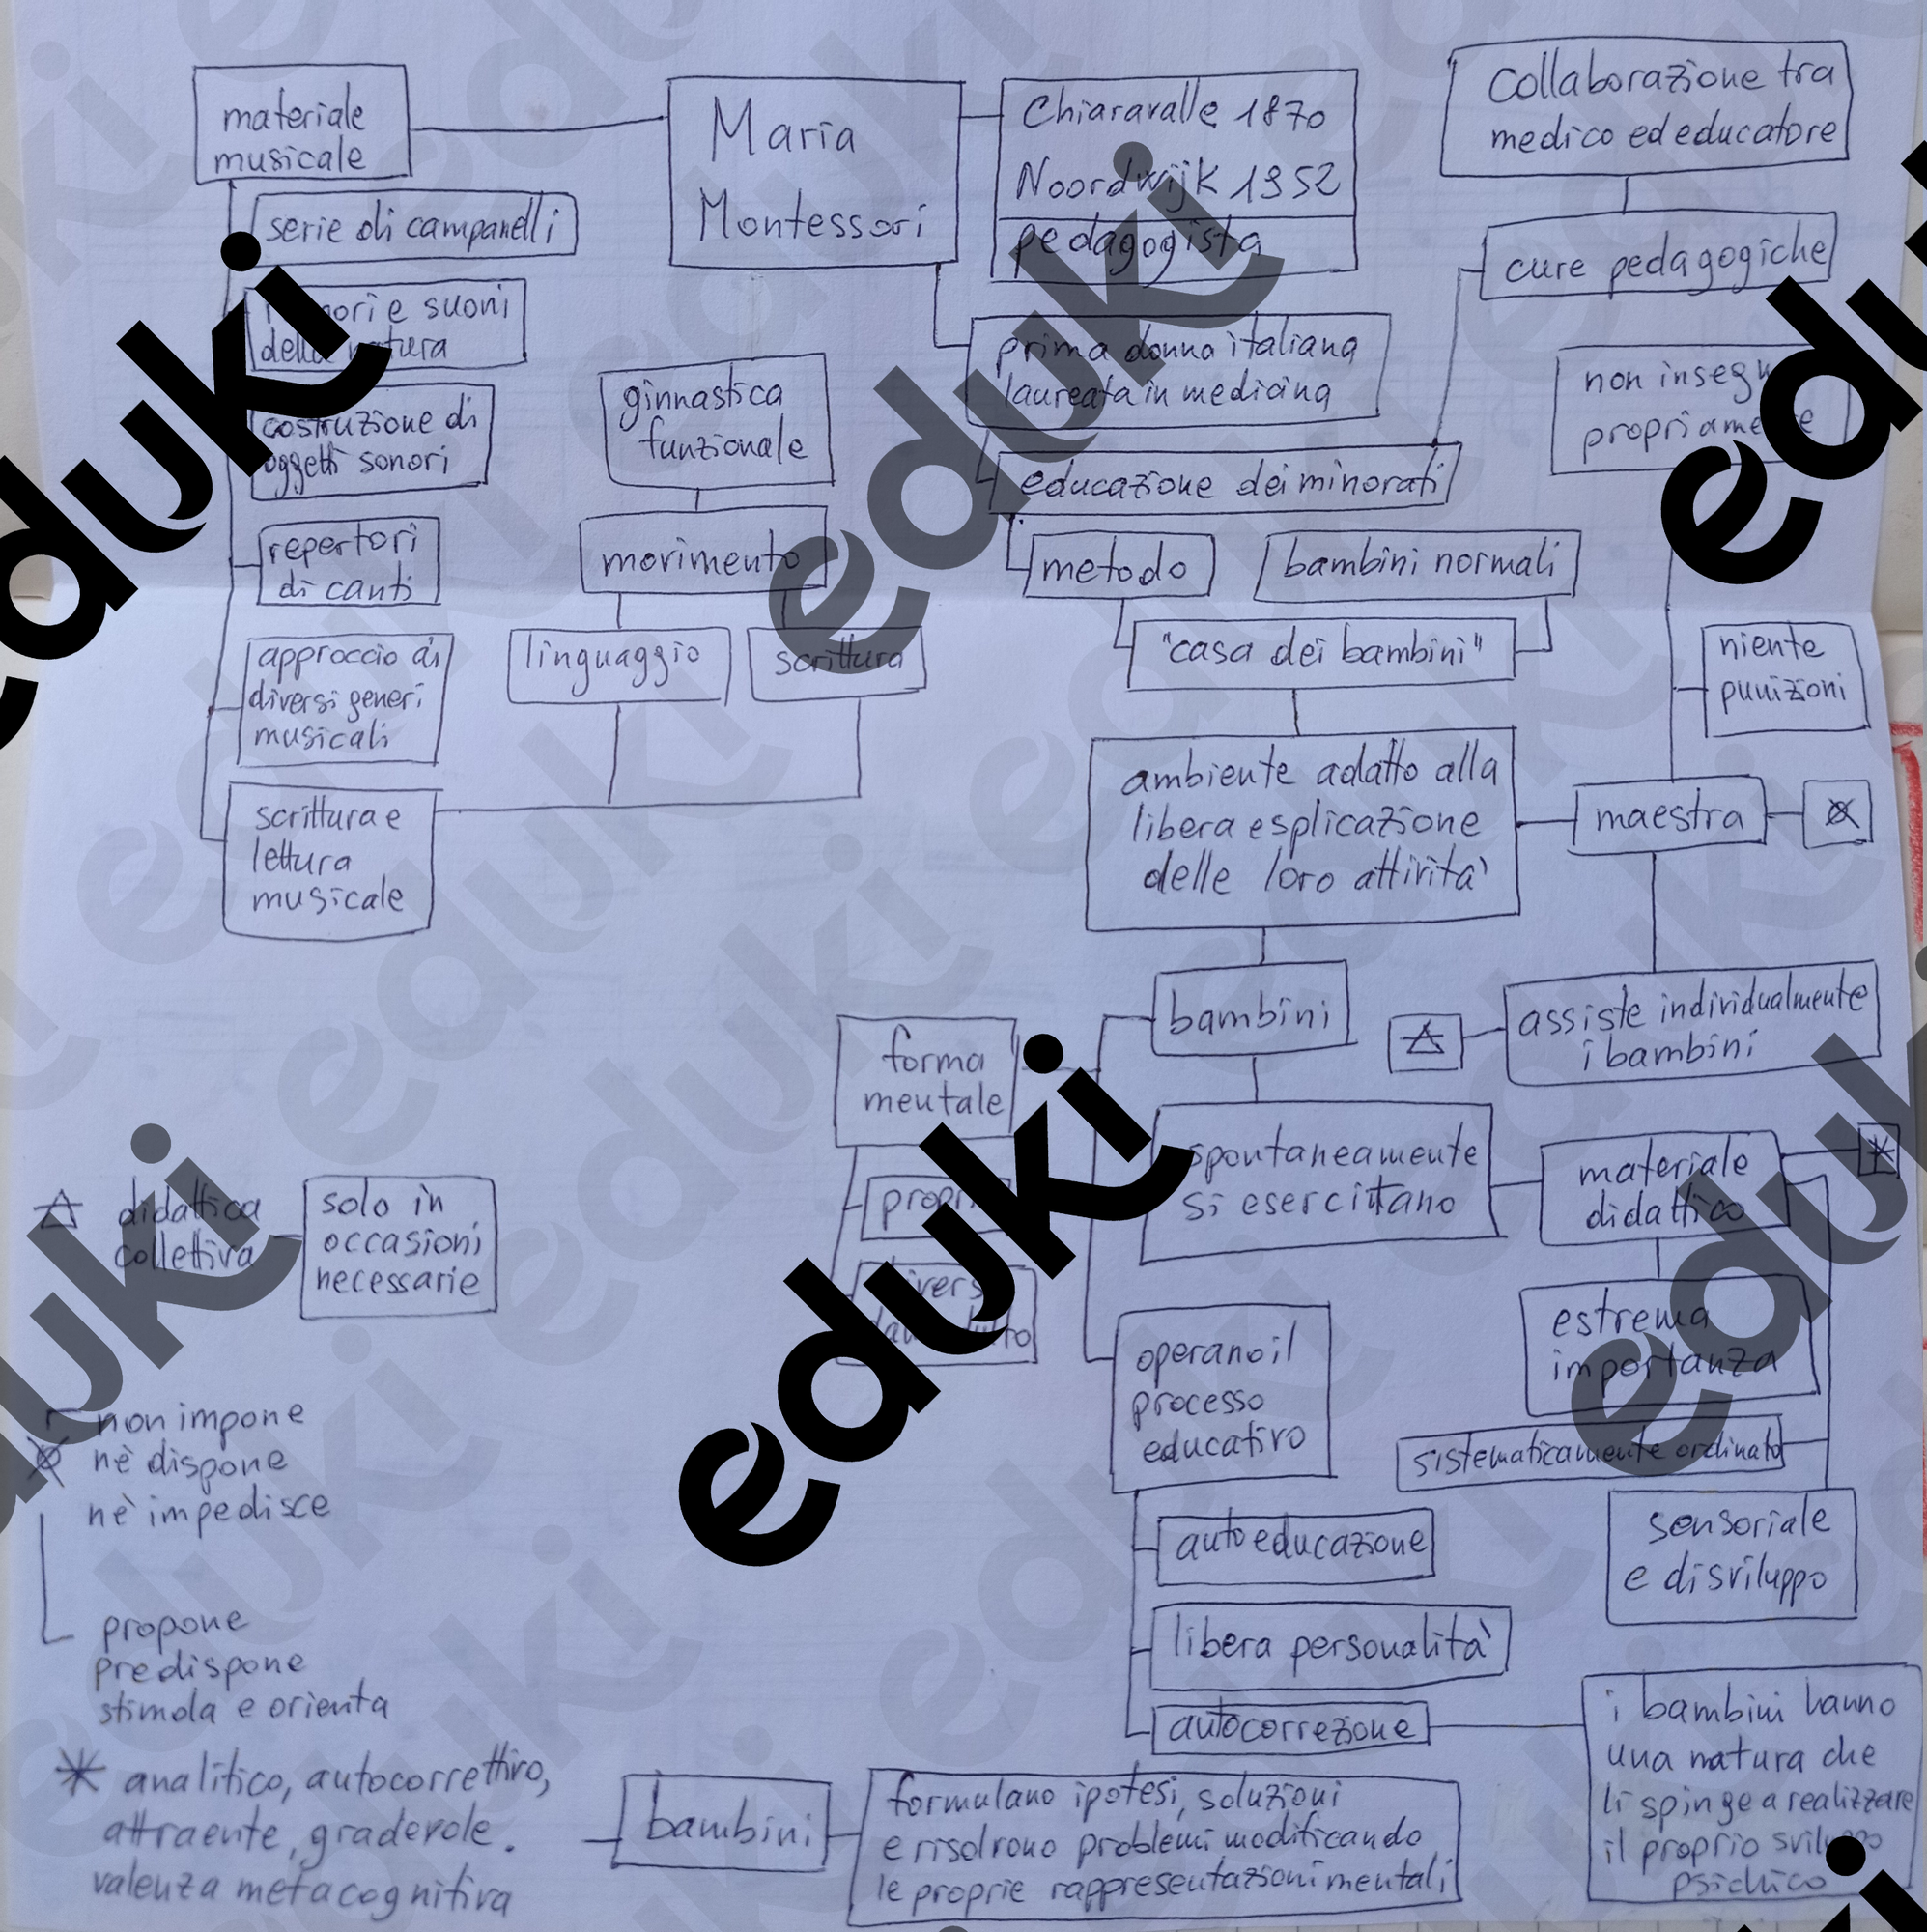 materiale
musicale
Maria
Montessori
Chiaravalle 1870
Noordwijk 1952
pedagogista
Collaborazione tra
medico ed educatore
serie di campanelli
cure pedagogiche
e suoni
della natura
prima donna italiana
laureata in medicina
non
propriamente
ginnastica
funzionale
costruzione di
oggetti sonori
educazione dei minorati
repertori
di canti
movimento
metodo
bambini normali
linguaggio
scrittura
"casa dei bambini"
niente
punizioni
approccio di
diversi generi
musicali
ambiente adatto alla
libera esplicazione
delle loro attività
maestra
scrittura e
lettura
musicale
bambini
assiste individualmente
i bambini
forma
mentale
spontaneamente
si esercittano
materiale
didattico
*
didattica
collettiva
solo in
occasioni
necessarie
estrema
importanza
operano il
processo
educativo
sistematicamente ordinato
non impone
nè dispone
nè impedisce
sensoriale
e di sviluppo
autoeducazione
propone
predispone
stimola e orienta
libera personalità
autocorrezione
i bambini hanno
una natura che
li spinge a realizzare
il proprio sviluppo
psichico
* analitico, autocorrettivo,
attraente, gradevole.
valenza metacognitiva
bambini
formulano ipotesi, soluzioni
e risolvono problemi modificando
le proprie rappresentazioni mentali
eduki
eduki
eduki
eduki
eduki
eduki